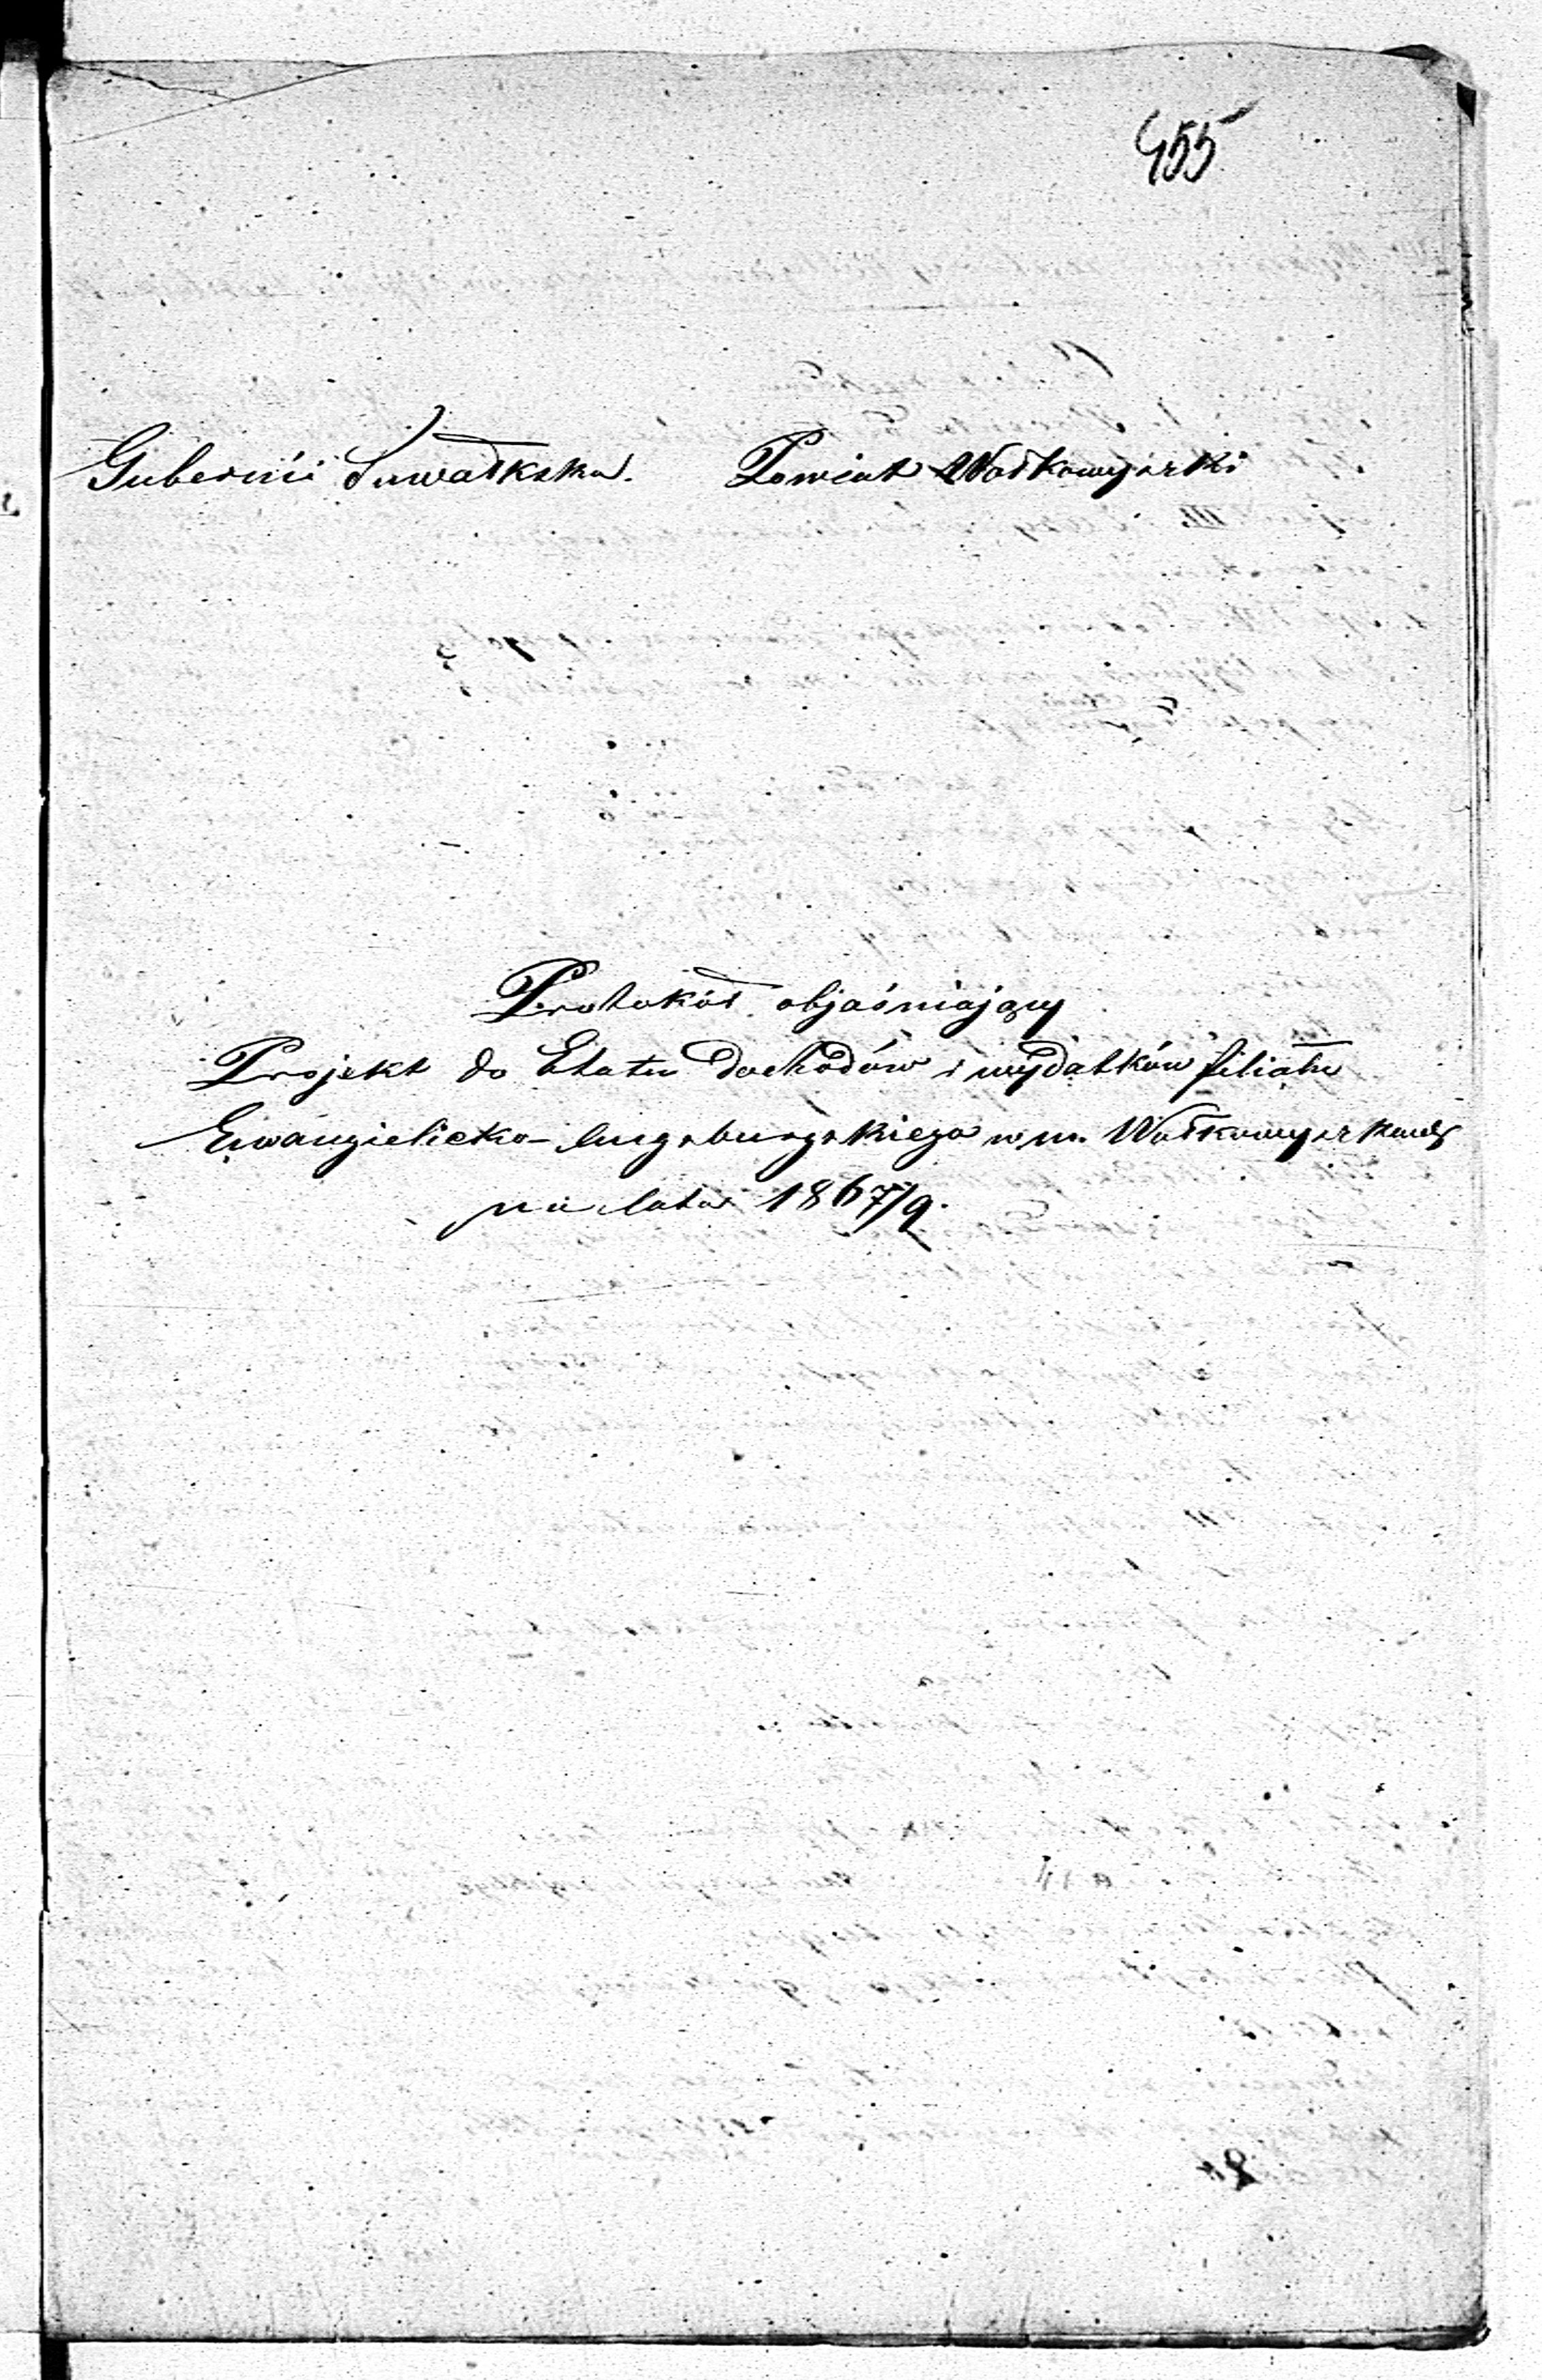 455
Gubernii Suwałkska. Powiat Wołkowyszki
Protokół objaśniający
Projekt do Etatu dochodów i wydatków filiału
Ewangielicko-Augsburgskiego w m. Wołkowyszkach
na lata 1867/9.